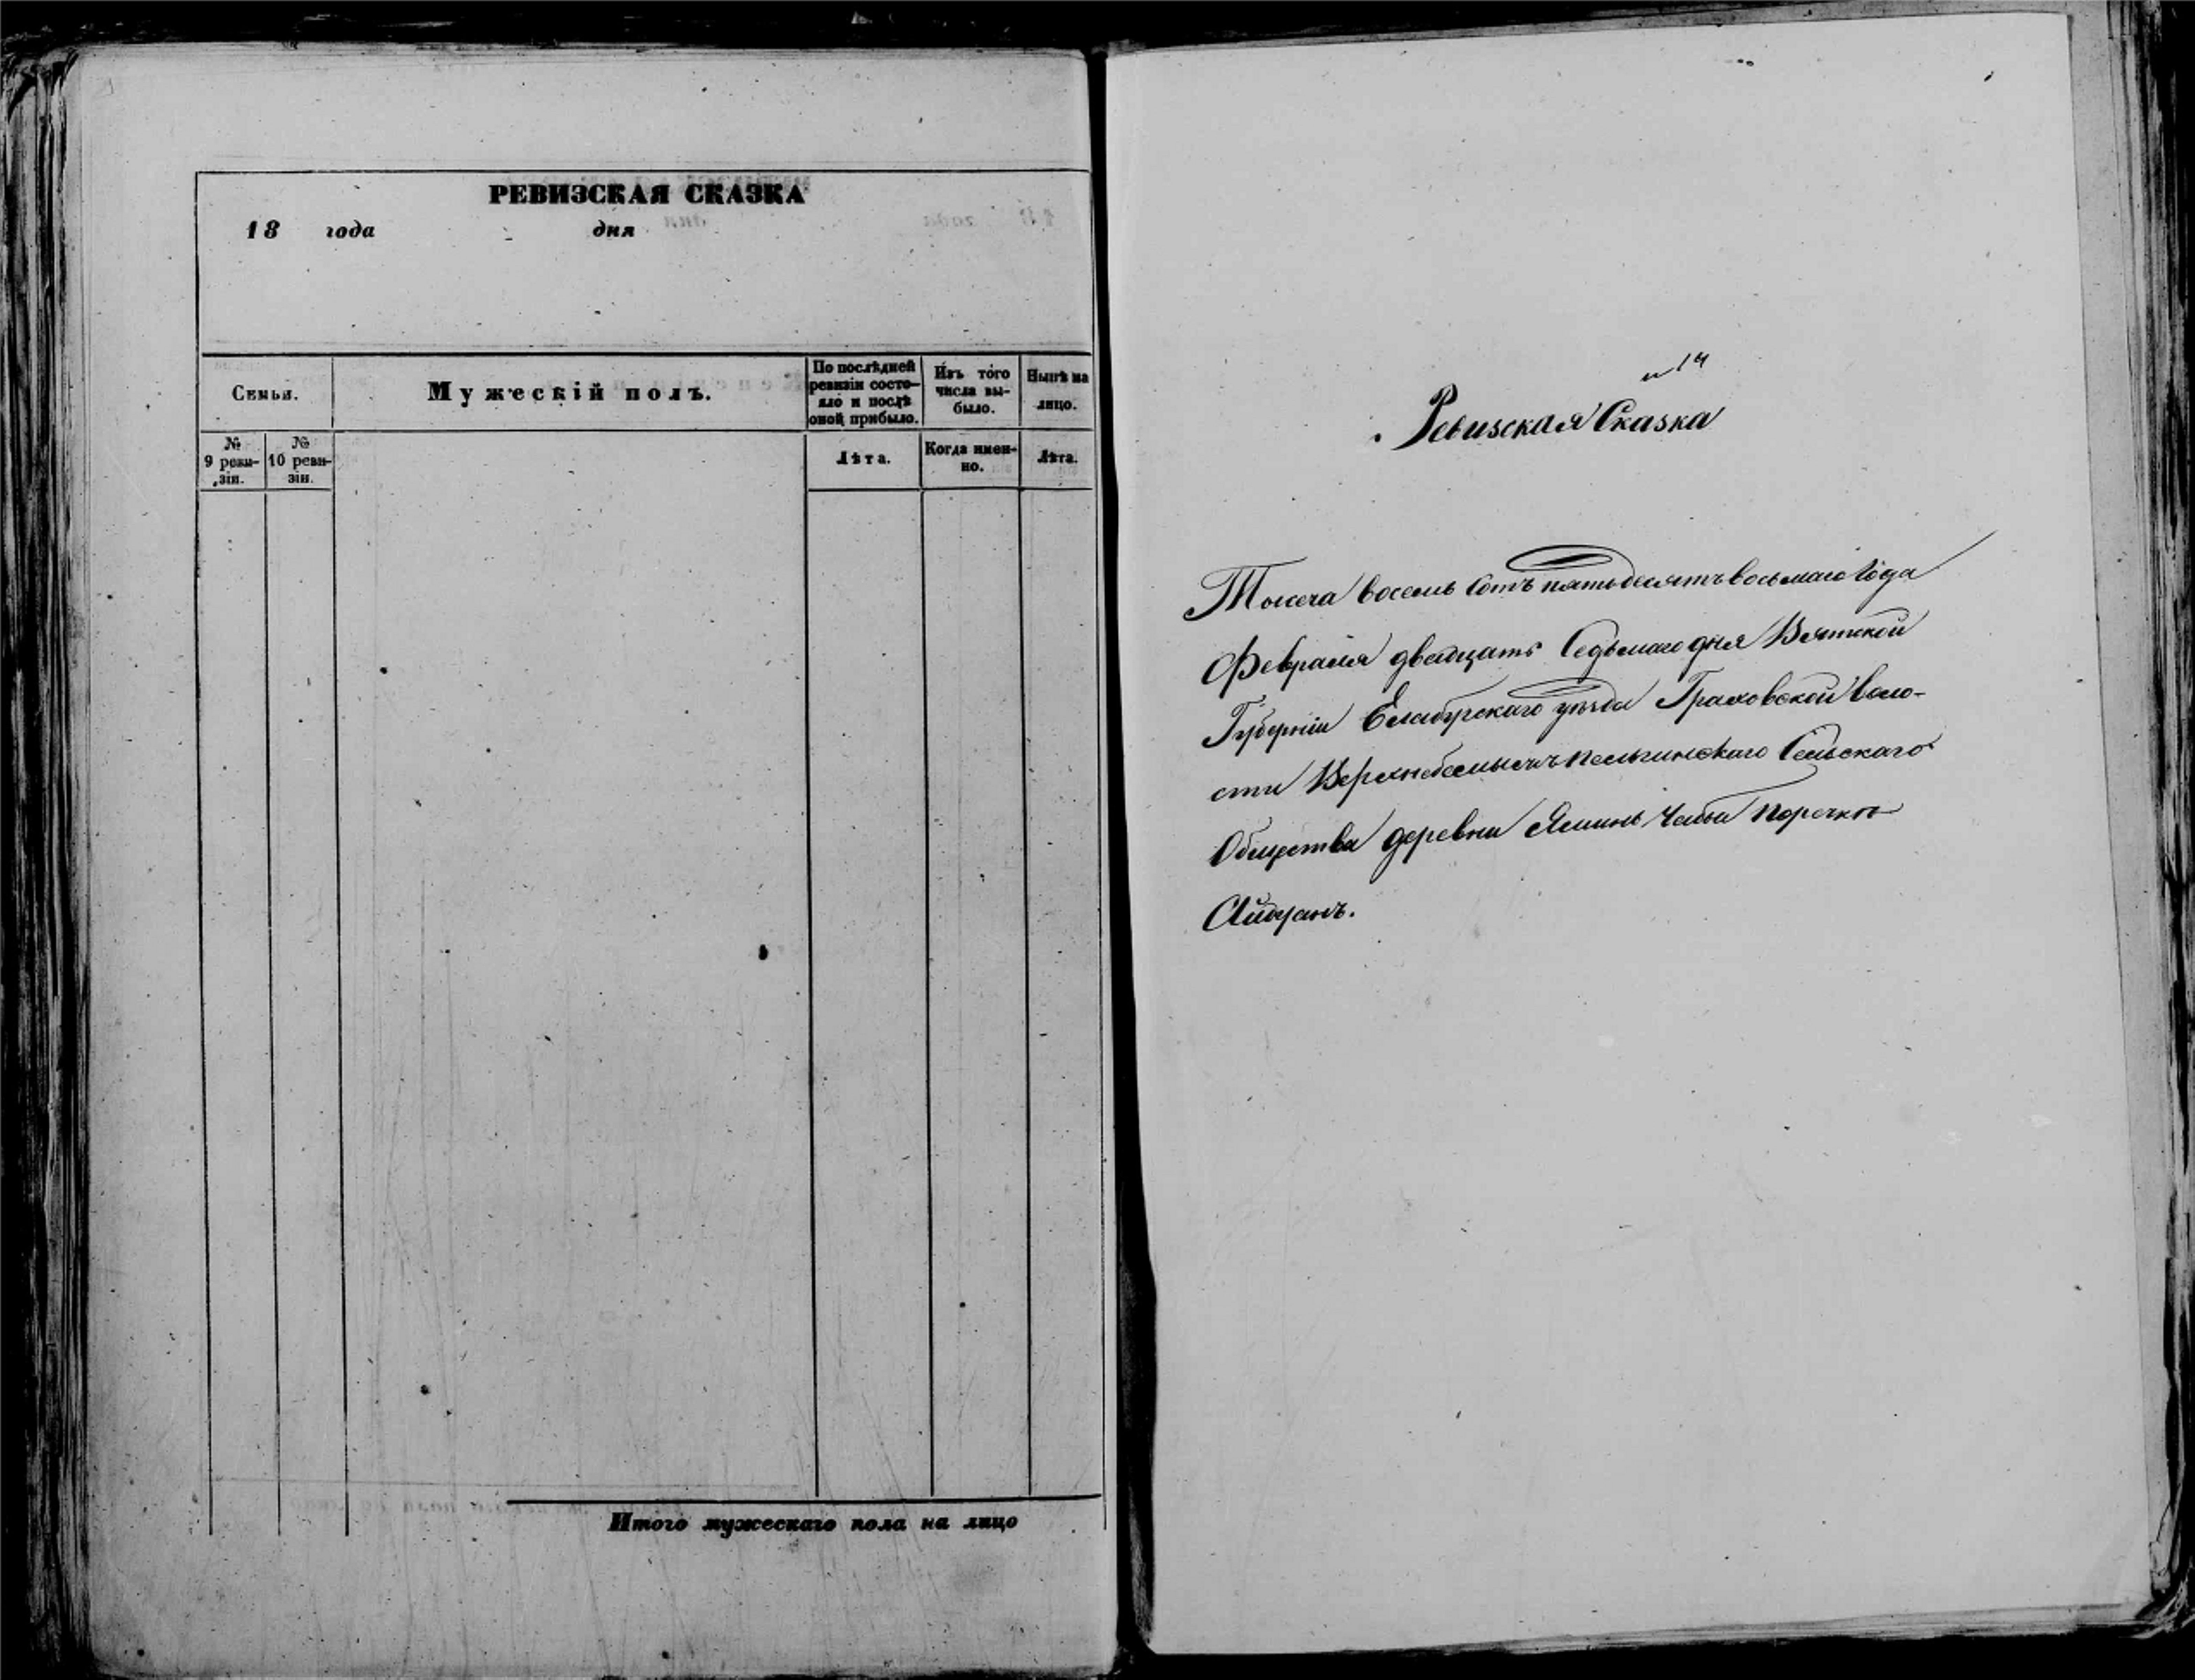 РЕВИЗСКАЯ СКАЗКА
18 года дня
Семьи.
Мужескій полъ.
По послѣдней ревизіи состояло и послѣ оной прибыло.
Изъ того числа выбыло.
Нынѣ на лицо.
№ 9 ревизіи.
№ 10 ревизіи.
Лѣта.
Когда именно.
Лѣта.
Итого мужескаго пола на лицо
14
Ревизская Сказка
Тысеча восемь сотъ пятьдесятъ восьмаго года
Февраля двадцать седьмаго дня Вятской
Губерніи Елабугскаго уѣзда Граховской воло-
сти Сельскаго
Общества деревни Яминь Чабьи поречкѣ
Айдуанъ.